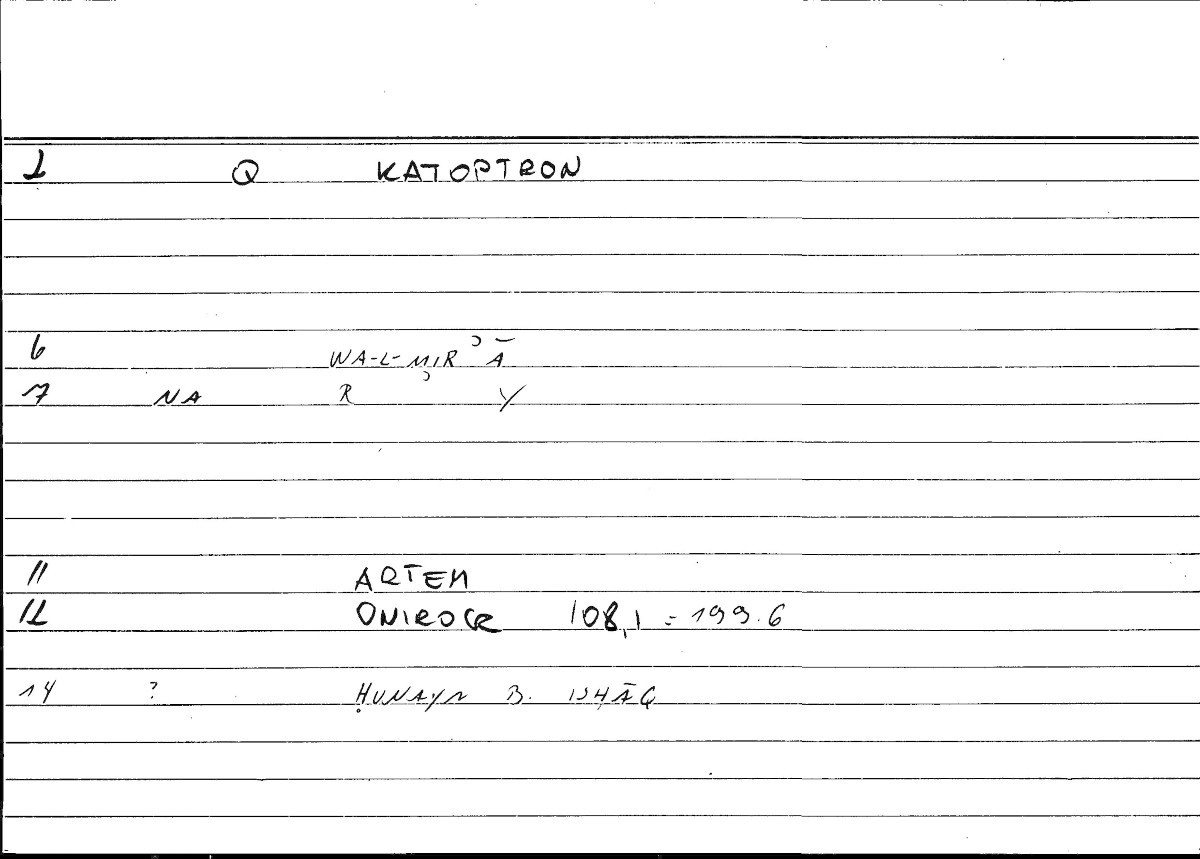 1 Q KATOPTRON
6 WA-L-MIRʾĀ
7 NA RʾY
11 ARTEM
12 ONIROCR 108,1 = 199.6
14 ? ḤUNAYN B. ISḤĀQ